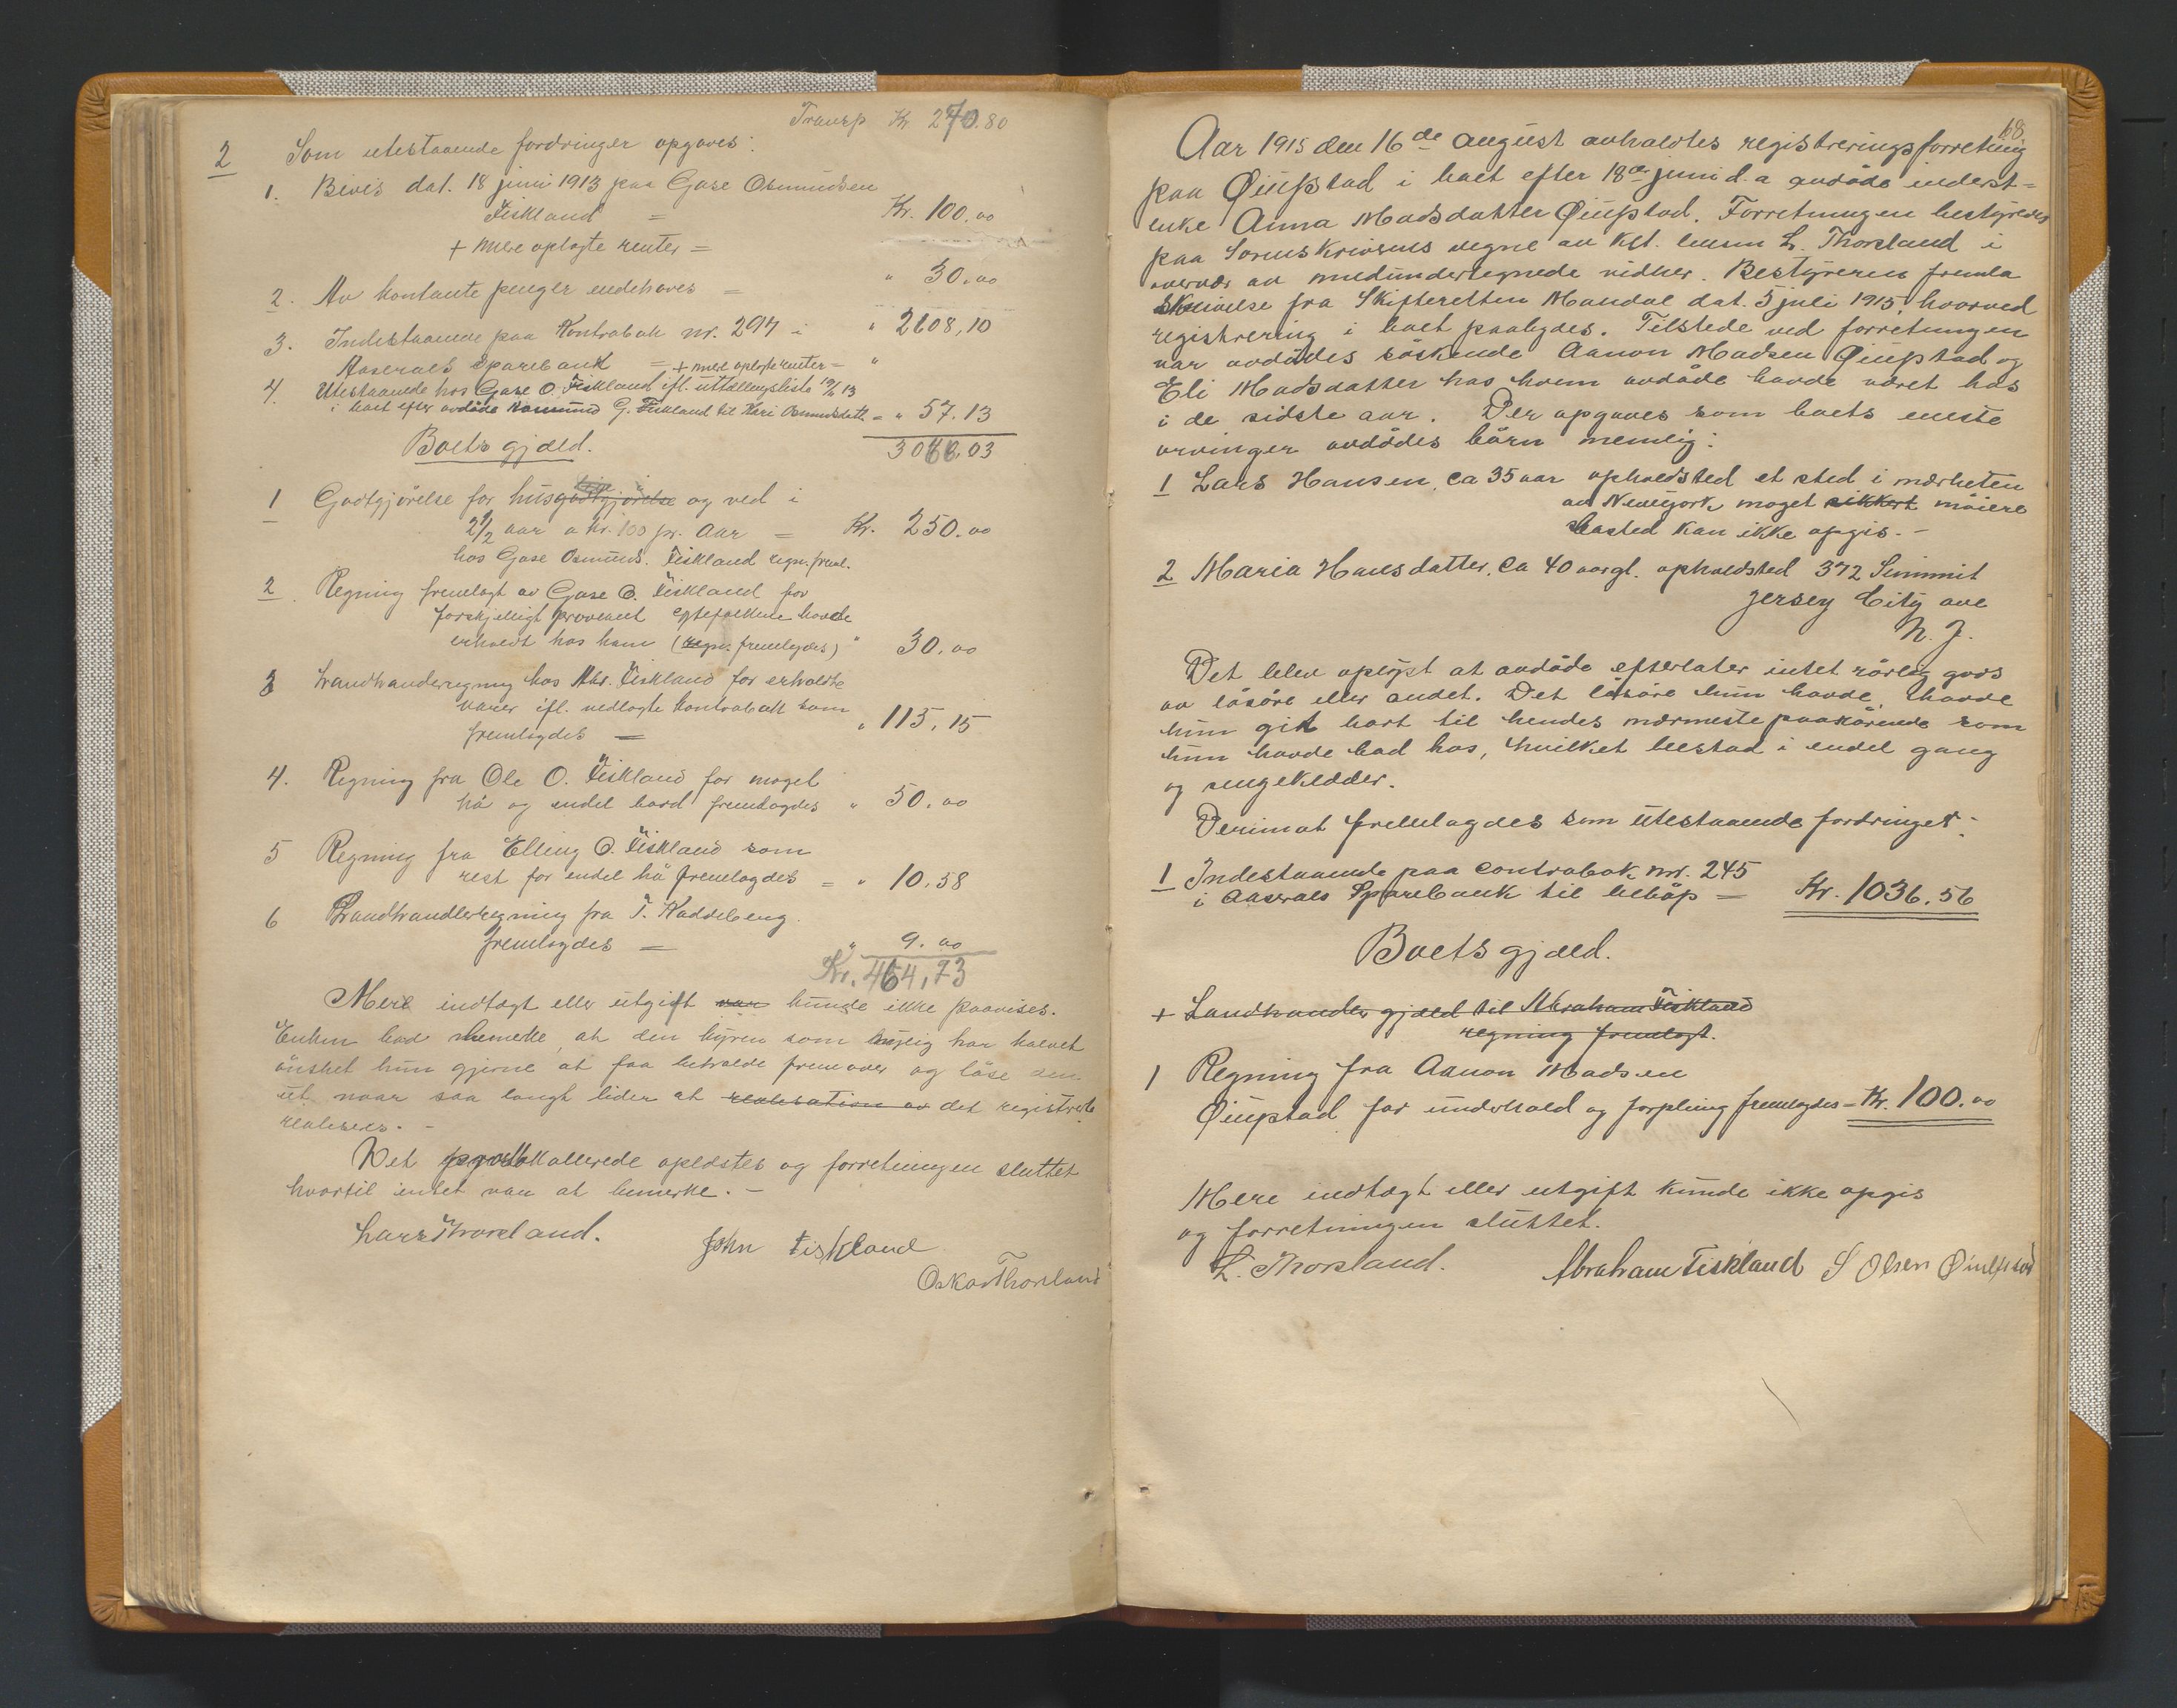 Transp Kr 270.80
2 Som utestaaende fordringer opgaves:
1. Bevis dat. 18 juni 1913 paa Gase Osmundsen
Fiskland = Kr. 100.00
+ mere oplagte renter =
2. Av kontante penger endehaves = " 30.00
3. Indestaaende paa Kontrabok nr. 297 i " 2608,10
Aaserals Sparebank = + mere oplagte renter = "
4. Utestaaende hos Gase O. Fiskland ifl. utlællingsliste 19/6 13
i boet efter avdøde Aasmund G. Fiskland til Kari Osmundsdatt. = " 57.13
3066,03
Boets gjæld.
1 Godtgjørelse for husgodtgjørelse og ved i
2 1/2 aar a kr. 100 pr. aar = Kr. 250.00
hos Gase Osmunds. Fiskland regn. freml.
2 Regning fremlagt av Gase O. Fiskland for
forskjelligt provenent egtefolkene havde
erholdt hos ham (regn. fremlagdes) " 30.00
3 Landhandleregning hos Abr. Fiskland for erholdte
varer ifl. vedlagte kontrabok som
fremlagdes = " 115,15
4. Regning fra Ole O. Fiskland for noget
hö og endel bord fremlagdes " 50.00
5 Regning fra Elling O. Fiskland som
rest for endel hö fremlagdes = " 10.58
6 Landhandleregning fra T. Kaddeberg.
fremlagdes = " 9.00
Kr. 464,73
Mere indtægt eller utgift var kunde ikke paavises.
Enken bad bemerke, at den kyren som nylig har kalvet
önsket hun gjerne at faa beholde fremover og löse den
ut naar saa langt lider at realisation av det registrerte
realiseres. -
Det protokollerede oplæstes og forretningen sluttet
hvortil intet var at bemerke. -
Lars Thorsland. John Fiskland
Oskar Thorsland
68
Aar 1915 den 16de august avholdtes registreringsforretning
paa Øiufstad i boet efter 18de juni d.a avdöde inderst=
enke Anna Madsdatter Øiufstad. Forretningen bestyredes
paa Sorenskriverens vegne av Kst. lensm L. Thorsland i
overvær av medundertegnede vidner. Bestyreren fremla
skrivelse fra Skifteretten Mandal dat. 5 juli 1915, hvorved
registrering i boet paalydes. Tilstede ved forretningen
var avdödes söskende Aanon Madsen Øiufstad og
Eli Madsdatter hos hvem avdöde havde været hos
i de sidste aar. Der opgaves som boets eneste
arvinger avdödes börn nemlig:
1 Lars Hansen, ca 35 aar opholdsted et sted i nærheten
av Newyork noget sikkert nöiere
bosted kan ikke opgis. -
2 Maria Hansdatter, ca 40 aar gl. opholdsted 372 Summit
Jersey City ave
N. J.
Det blev oplyst at avdöde efterlater intet rörlig gods
av lösöre eller andet. Det lösöre hun havde, havde
hun git bort til hendes nærmeste paarörende som
hun havde bod hos, hvilket bestod i endel gang
og sengeklæder.
Derimot fremlagdes som utestaaende fordringer:
1 Indestaaende paa contrabok nr. 245
i Aaserals Sparebank til belöp = Kr. 1036.56
Boets gjæld.
+ Landhandler gjæld til Abraham Fiskland
regning fremlagt.
1 Regning fra Aanon Madsen
Øiufstad for underhold og forpleing fremlagdes = Kr. 100.00
Mere indtægt eller utgift kunde ikke opgis
og forretningen sluttet.
L. Thorsland. Abraham Fiskland S Olsen Øiufstad